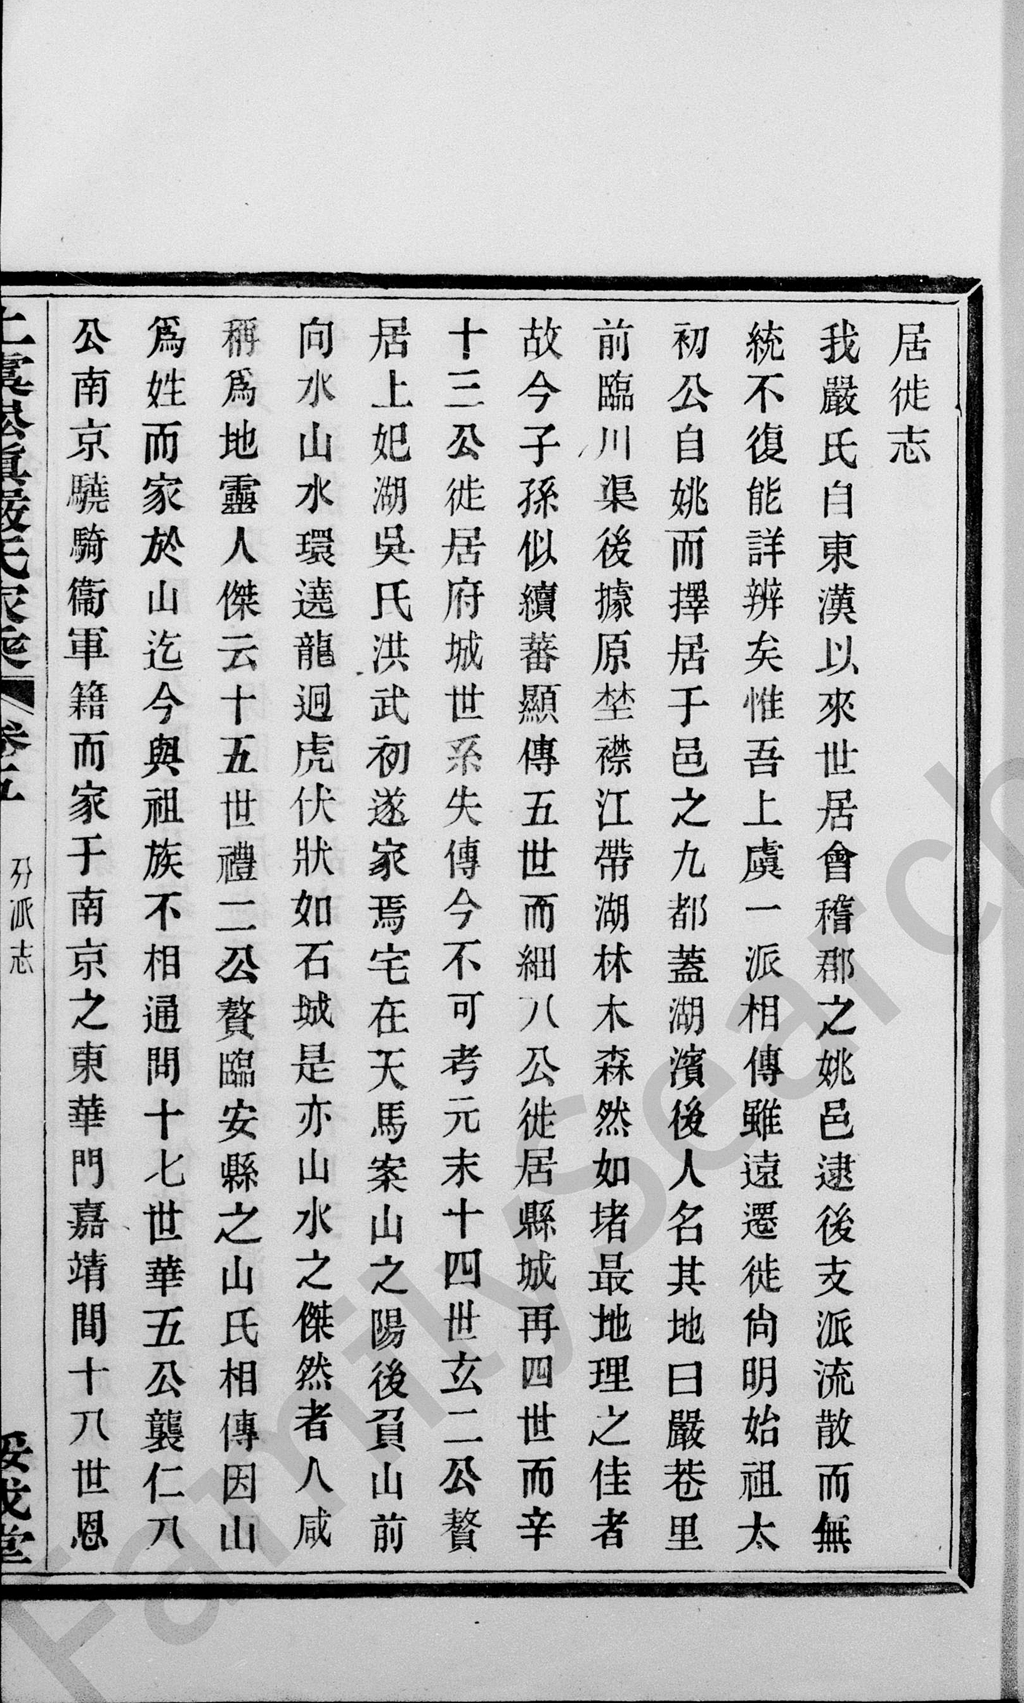 居徙志
我嚴氏自東漢以來世居會稽郡之姚邑逮後支派流散而無
統不復能詳辨矣惟吾上虞一派相傳雖遠遷徙尙明始祖太
初公自姚而擇居于邑之九都蓋湖濱後人名其地曰嚴巷里
前臨川渠後據原埜襟江帶湖林木森然如堵最地理之佳者
故今子孫似續蕃顯傳五世而細八公徙居縣城再四世而辛
十三公徙居府城世系失傳今不可考元末十四世玄二公贅
居上妃湖吳氏洪武初遂家焉宅在天馬案山之陽後負山前
向水山水環遶龍迴虎伏狀如石城是亦山水之傑然者人咸
稱爲地靈人傑云十五世禮二公贅臨安縣之山氏相傳因山
爲姓而家於山迄今與祖族不相通問十七世華五公襲仁八
公南京驍騎衞軍籍而家于南京之東華門嘉靖間十八世恩
上虞松鎭嚴氏家乘 卷五 分派志 綏成堂
FamilySearch